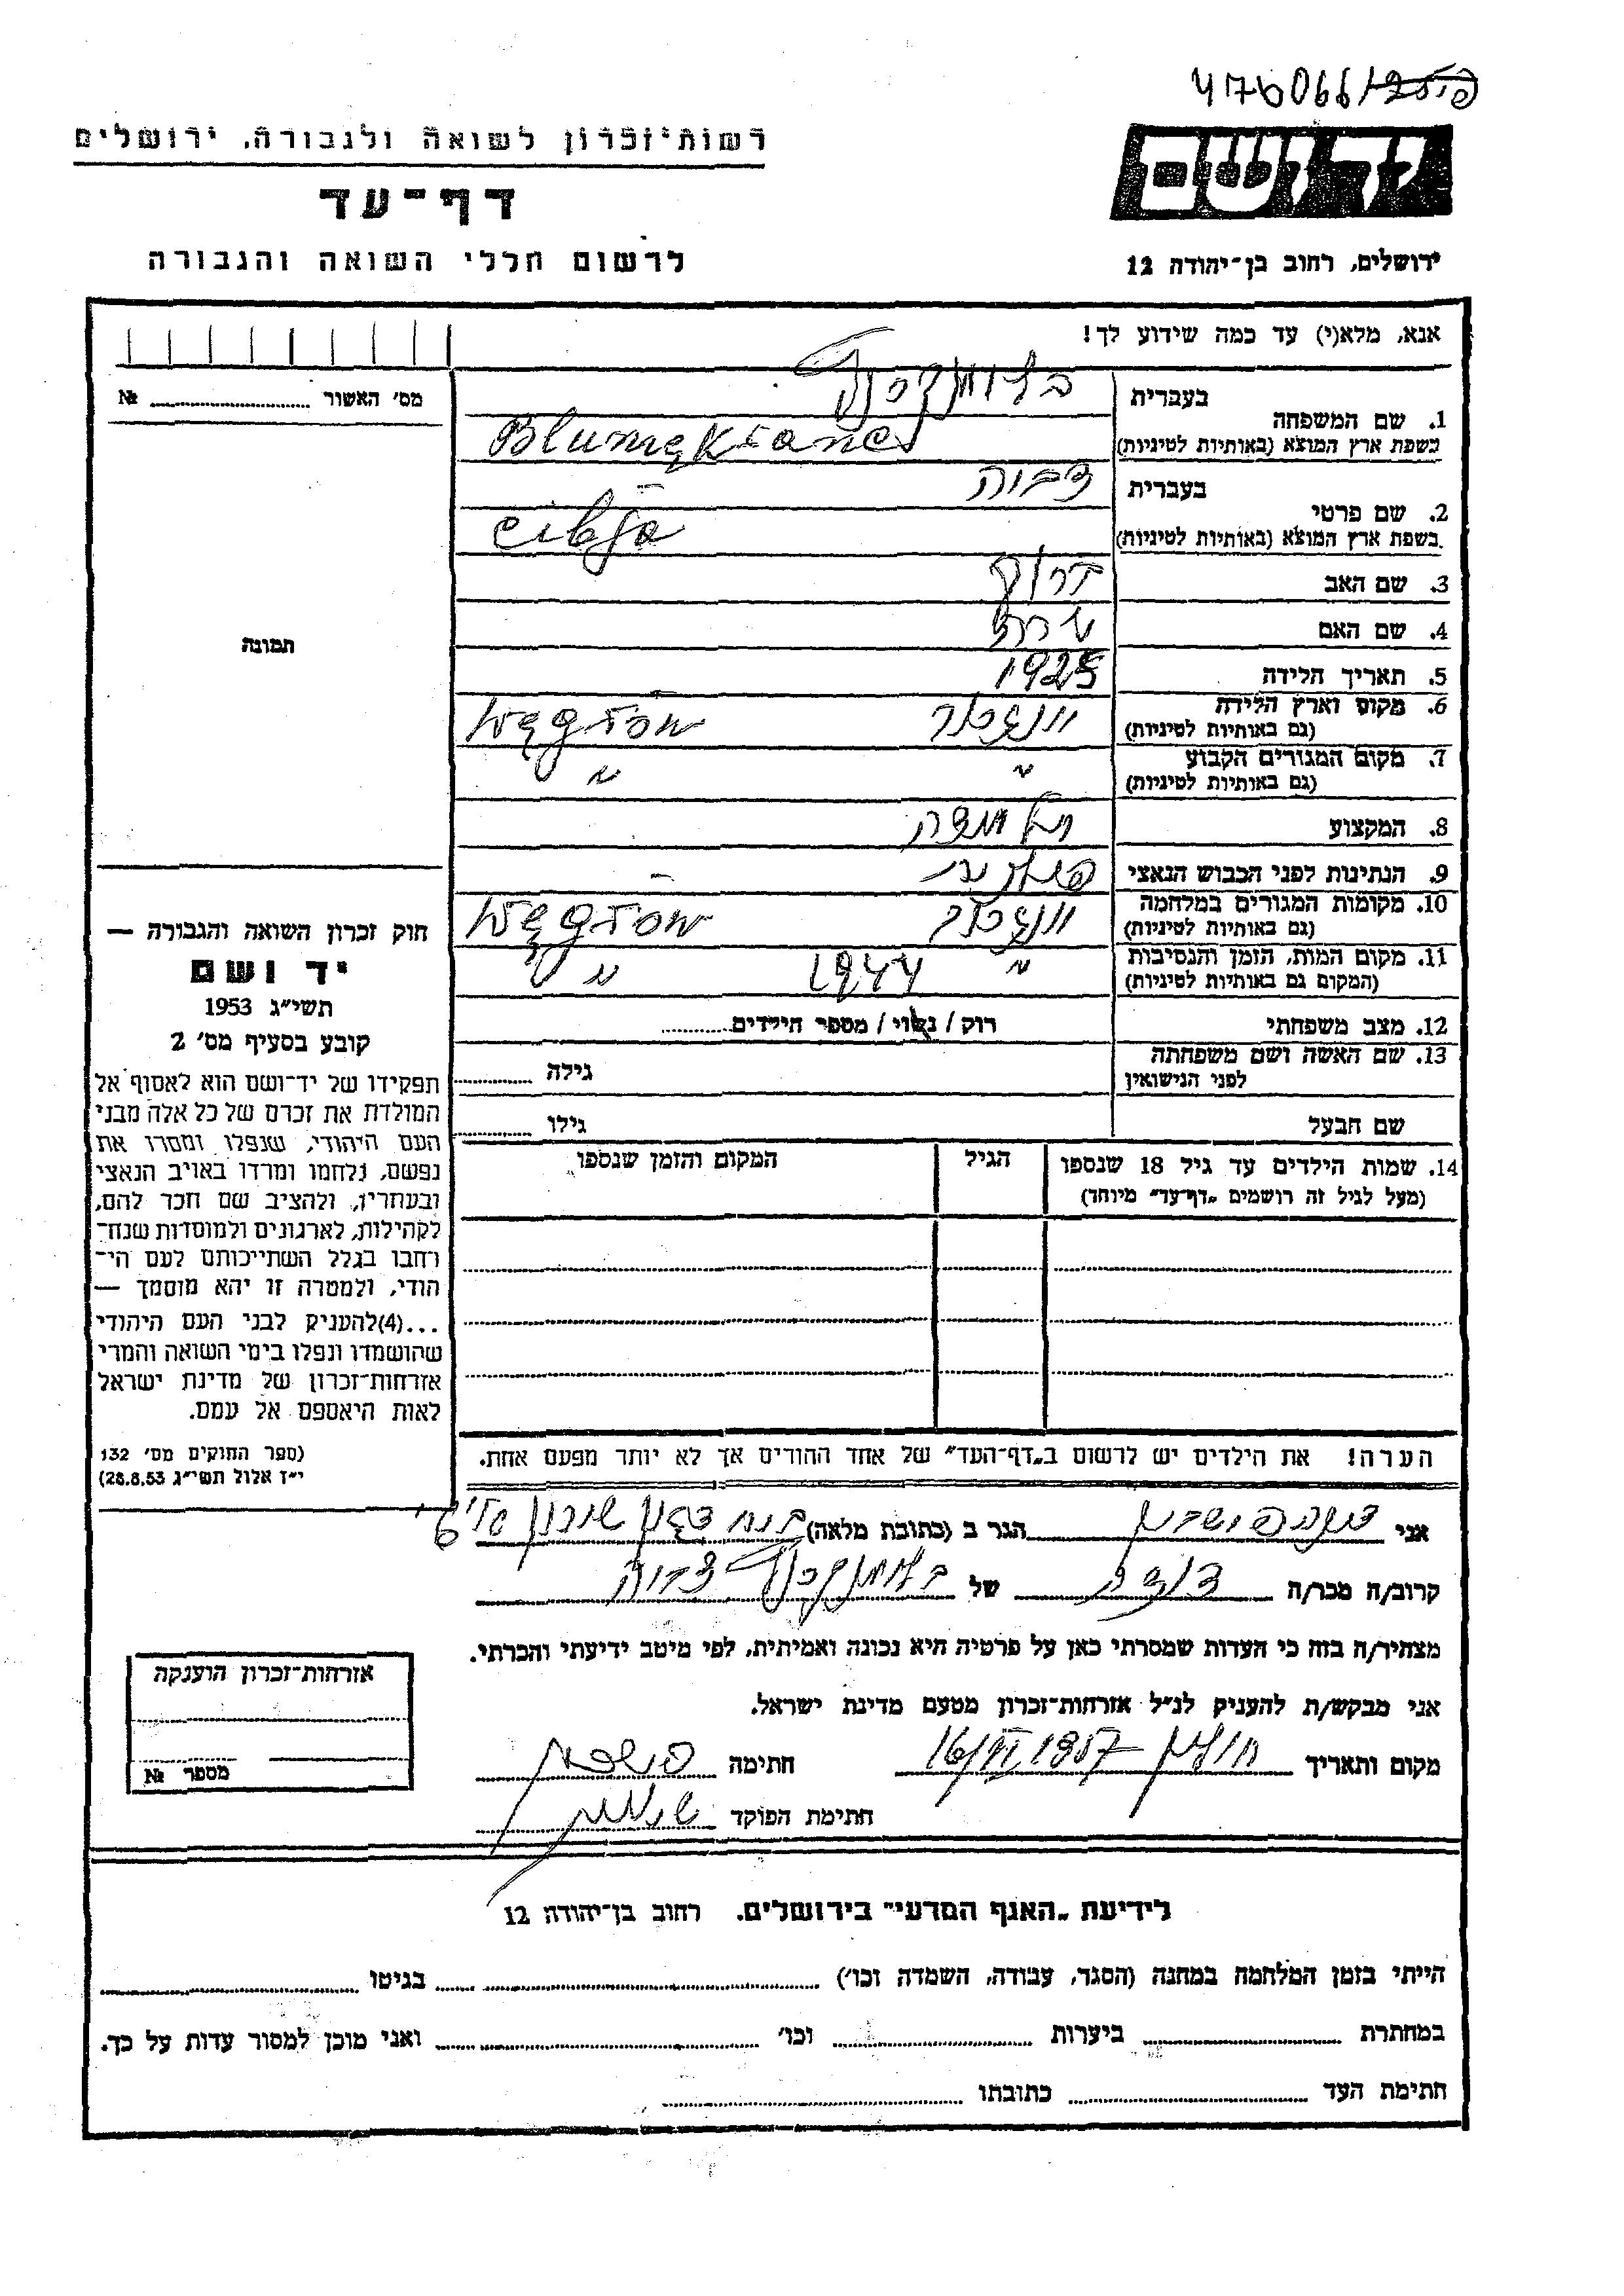 רשות־זכרון לשואה ולגבורה, ירושלים
דף־עד
לרשום חללי השואה והגבורה
ירושלים, רחוב בן־יהודה 12
אנא, מלא(י) עד כמה שידוע לך!
מס׳ האשור №
תמונה
1. שם המשפחה
בעברית
בשפת ארץ המוצא (באותיות לטיניות)
2. שם פרטי
בעברית צביה
בשפת ארץ המוצא (באותיות לטיניות) Cibja
3. שם האב
4. שם האם
5. תאריך הלידה 1925
6. מקום וארץ הלידה
(גם באותיות לטיניות) Węgrów
7. מקום המגורים הקבוע
(גם באותיות לטיניות) " "
8. המקצוע
9. הנתינות לפני הכבוש הנאצי
10. מקומות המגורים במלחמה
(גם באותיות לטיניות) Węgrów
11. מקום המות, הזמן והנסיבות
(המקום גם באותיות לטיניות) " 1944 "
12. מצב משפחתי רוק / נשוי / מספר הילדים
13. שם האשה ושם משפחתה
לפני הנישואין גילה
שם הבעל גילו
14. שמות הילדים עד גיל 18 שנספו
(מעל לגיל זה רושמים „דף־עד" מיוחד)
הגיל
המקום והזמן שנספו
הערה! את הילדים יש לרשום ב„דף־העד" של אחד ההורים אך לא יותר מפעם אחת.
חוק זכרון השואה והגבורה —
יד ושם
תשי״ג 1953
קובע בסעיף מס׳ 2
תפקידו של יד־ושם הוא לאסוף אל
המולדת את זכרם של כל אלה מבני
העם היהודי, שנפלו ומסרו את
נפשם, נלחמו ומרדו באויב הנאצי
ובעוזריו, ולהציב שם וזכר להם,
לקהילות, לארגונים ולמוסדות שנח־
רבו בגלל השתייכותם לעם הי־
הודי, ולמטרה זו יהא מוסמך —
...(4) להעניק לבני העם היהודי
שהושמדו ונפלו בימי השואה והמרי
אזרחות־זכרון של מדינת ישראל
לאות היאספם אל עמם.
(ספר החוקים מס׳ 132
י״ז אלול תשי״ג 28.8.53)
אני הגר ב (כתובת מלאה)
קרוב/ה מכר/ה של צביה
מצהיר/ה בזה כי העדות שמסרתי כאן על פרטיה היא נכונה ואמיתית, לפי מיטב ידיעתי והכרתי.
אני מבקש/ת להעניק לנ״ל אזרחות־זכרון מטעם מדינת ישראל.
מקום ותאריך חולון 1957 חתימה
חתימת הפוקד
אזרחות־זכרון הוענקה
מספר №
לידיעת „האגף המדעי" בירושלים. רחוב בן־יהודה 12
הייתי בזמן המלחמה במחנה (הסגר, עבודה, השמדה וכו׳) בגיטו
במחתרת ביערות וכו׳ ואני מוכן למסור עדות על כך.
חתימת העד כתובתו